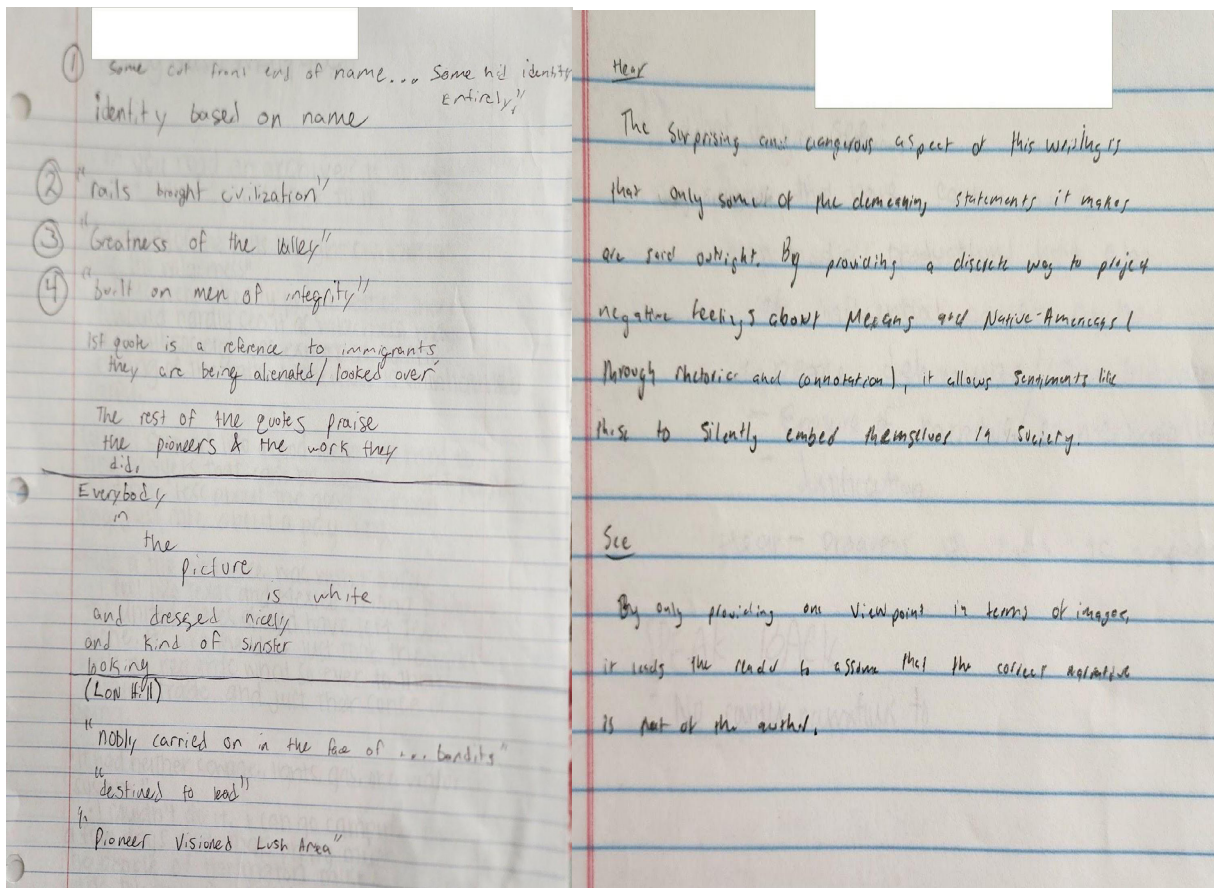 ① some cut front end of name... Some hid identity
entirely"
identity based on name
② "rails brought civilization"
③ "Greatness of the valley"
④ "built on men of integrity"
1st quote is a reference to immigrants
they are being alienated/looked over
The rest of the quotes praise
the pioneers & the work they
did.
Everybody
in
the
picture
is white
and dressed nicely
and kind of sinister
looking
(Lon Hill)
"nobly carried on in the face of ... bandits"
"destined to lead"
"Pioneer Visioned Lush Area"
Hear
The surprising and dangerous aspect of this is
that only some of the demeaning statements it makes
are said outright. By providing a discrete way to project
negative feelings about and Native-Americans (
through rhetoric and connotation), it allows sentiments like
these to silently embed themselves in society.
See
By only providing one viewpoint in terms of images,
it leads the reader to assume that the correct narrative
is that of the author.